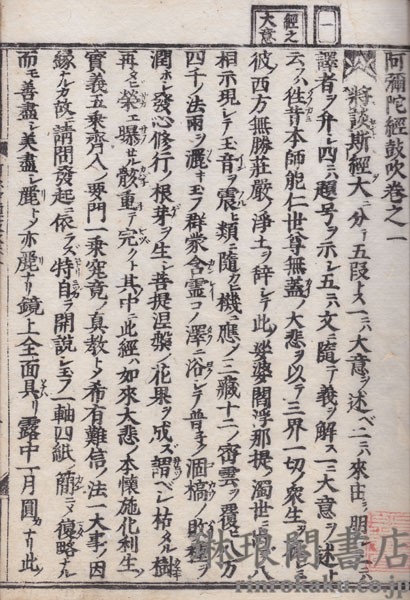 一
經之
大意
阿彌陀經鼓吹卷之一
將談斯經大ニ分テ五段トス一ニハ大意ヲ述ベ二ニハ來由ヲ明シ三ニハ
譯者ヲ弁シ四ニハ題号ヲ示シ五ニハ文ニ隨テ義ヲ解ス一ニ大意ヲ述トハ
云ク往昔本師能仁世尊無蓋ノ大悲ヲ以テ三界一切ノ衆生
彼ノ西方無勝莊嚴ノ淨土ヲ辞シテ此ノ娑婆閻浮那提濁世ニ八
相示現シテ玉音ヲ震ヒ類ニ隨ヒ機ニ應ノ三藏十二ノ齊雲ヲ覆ヒ八万
四千ノ法雨ヲ灑キ玉フ群蒙含靈コノ澤ニ浴シテ普ク涸槁ノ敗種ヲ
潤ホシ發心修行ノ根芽ヲ生シ菩提涅槃ノ花果ヲ成ス謂ベシ枯タル樹
再ヒ榮ヘ曝セル骸重テ完シト其中ニ此經ハ如來大悲ノ本懷施化利生ノ
實義五乘齊入ノ要門一乘究竟ノ真教トノ希有難信ノ法一大事ノ因
緣ナルカ故ニ請問發起ニ依ラズ特自ラ開說シ玉フ一軸四紙ノ簡ニノ復略ナル
而モ善盡シ美盡シ麗トノ亦麗ナリ鏡上全面具リ露中一月圓ナリ此
琳琅閣書店
rinrokaku.co.jp